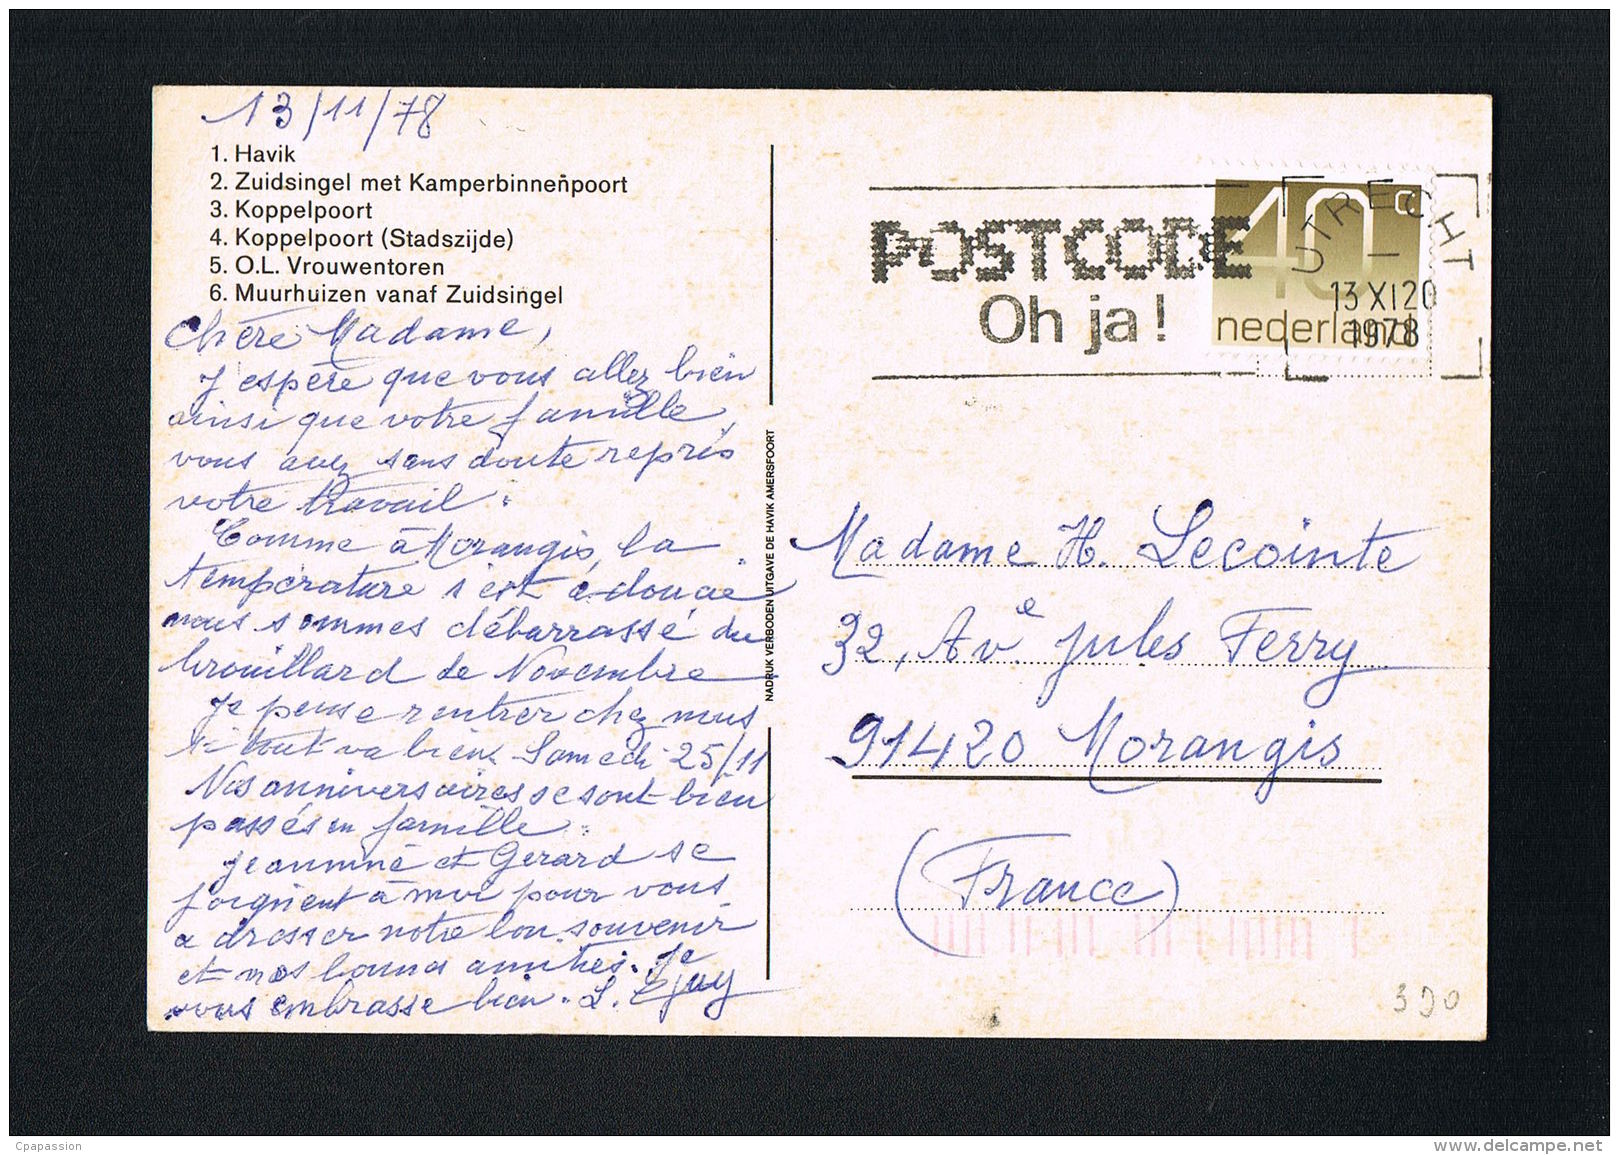 13/11/78
1. Havik
2. Zuidsingel met Kamperbinnenpoort
3. Koppelpoort
4. Koppelpoort (Stadszijde)
5. O.L. Vrouwentoren
6. Muurhuizen vanaf Zuidsingel
Chère Madame,
J'espère que vous allez bien
ainsi que votre famille,
vous avez sans doute repris
votre travail.
Comme à Morangis, la
température s'est adoucie
nous sommes débarrassé du
brouillard de Novembre
Je pense rentrer chez nous
si tout va bien Samedi 25/11
Nos anniversaires se sont bien
passés en famille.
Jeannine et Gerard se
joignent à moi pour vous
adresser notre bon souvenir
et nos bonnes amitiés. Je
vous embrasse bien. L.
NADRUK VERBODEN UITGAVE DE HAVIK AMERSFOORT
POSTCODE
Oh ja!
40c
nederland
UTRECHT
13 XI 20
1978
Madame H. Lecointe
32, Ave. Jules Ferry
91420 Morangis
(France)
390
Cpapassion
www.delcampe.net